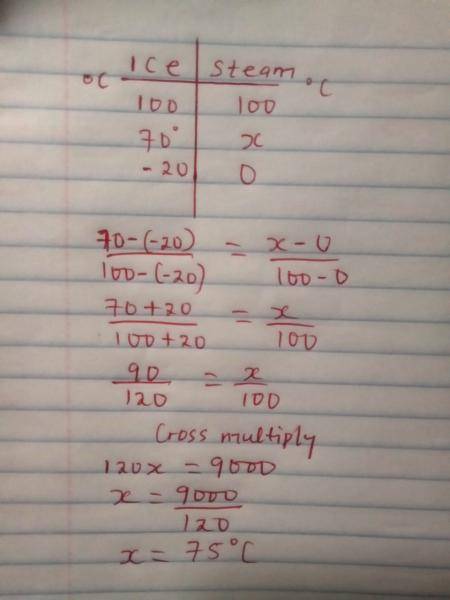 °C Ice | Steam °C
100 | 100
70° | x
-20 | 0
70-(-20) / 100-(-20) = x-0 / 100-0
70+20 / 100+20 = x / 100
90 / 120 = x / 100
Cross multiply
120x = 9000
x = 9000 / 120
x = 75°C